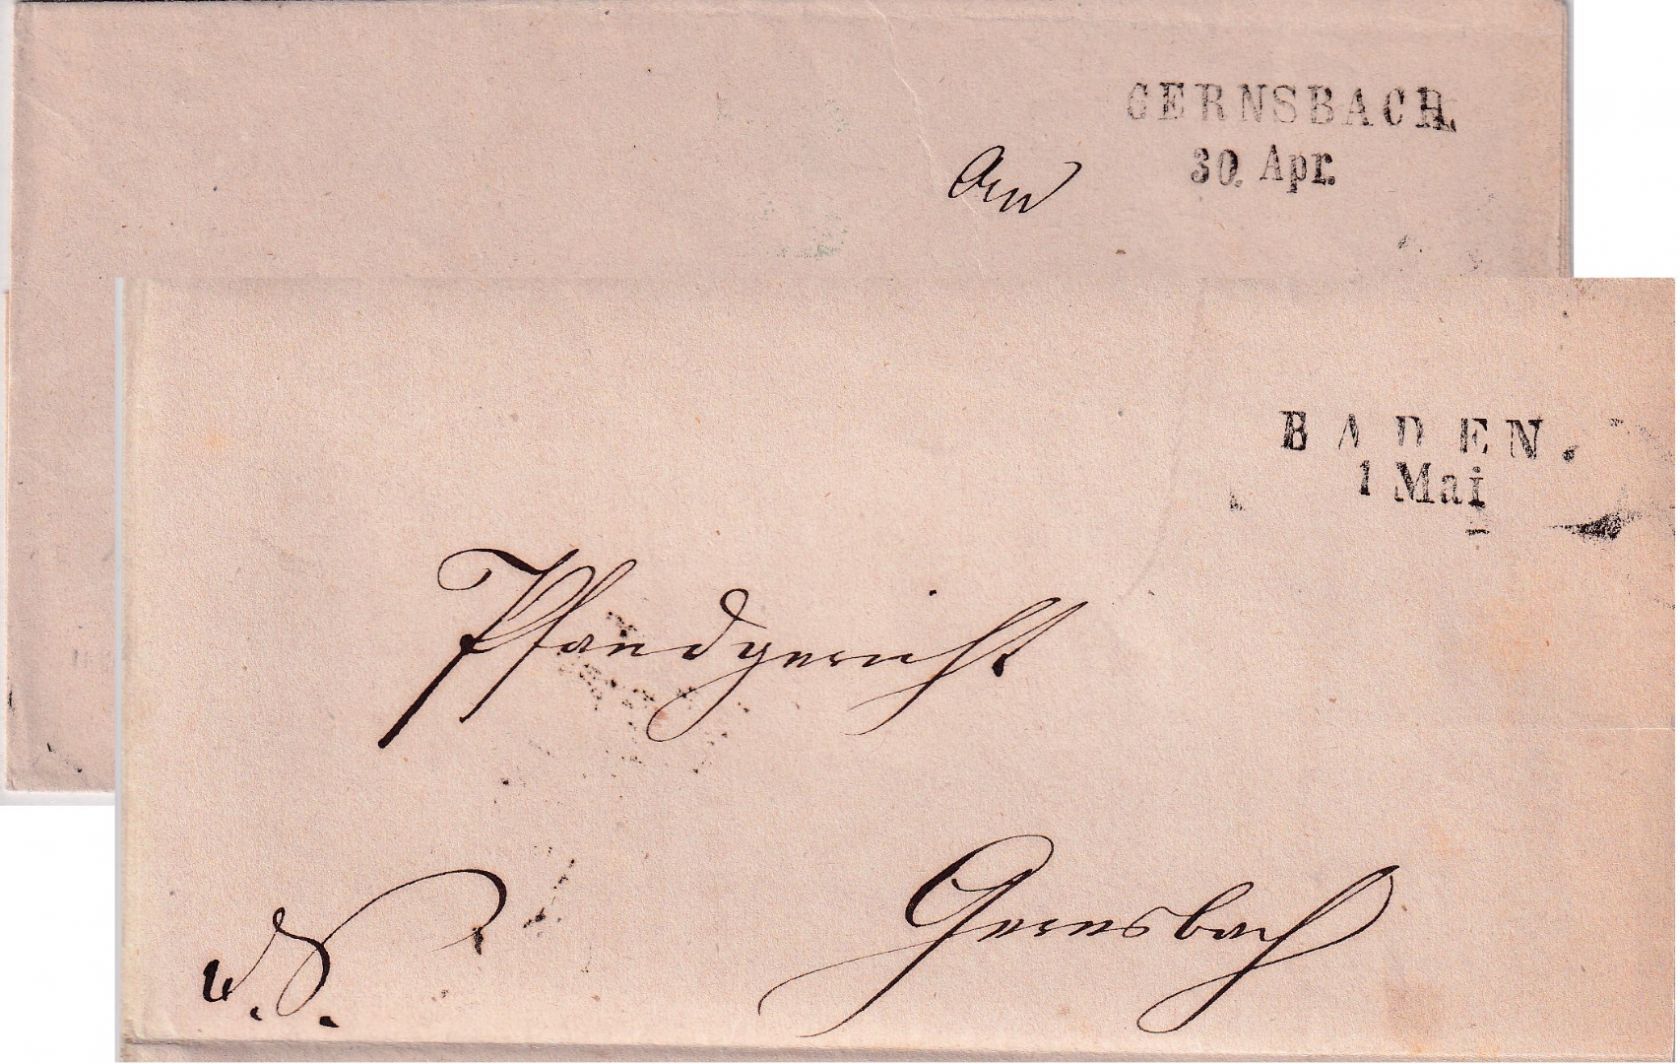 GERNSBACH.
30. Apr.
An
BADEN.
1 Mai
Pfandgericht
Gernsbach
d. S.